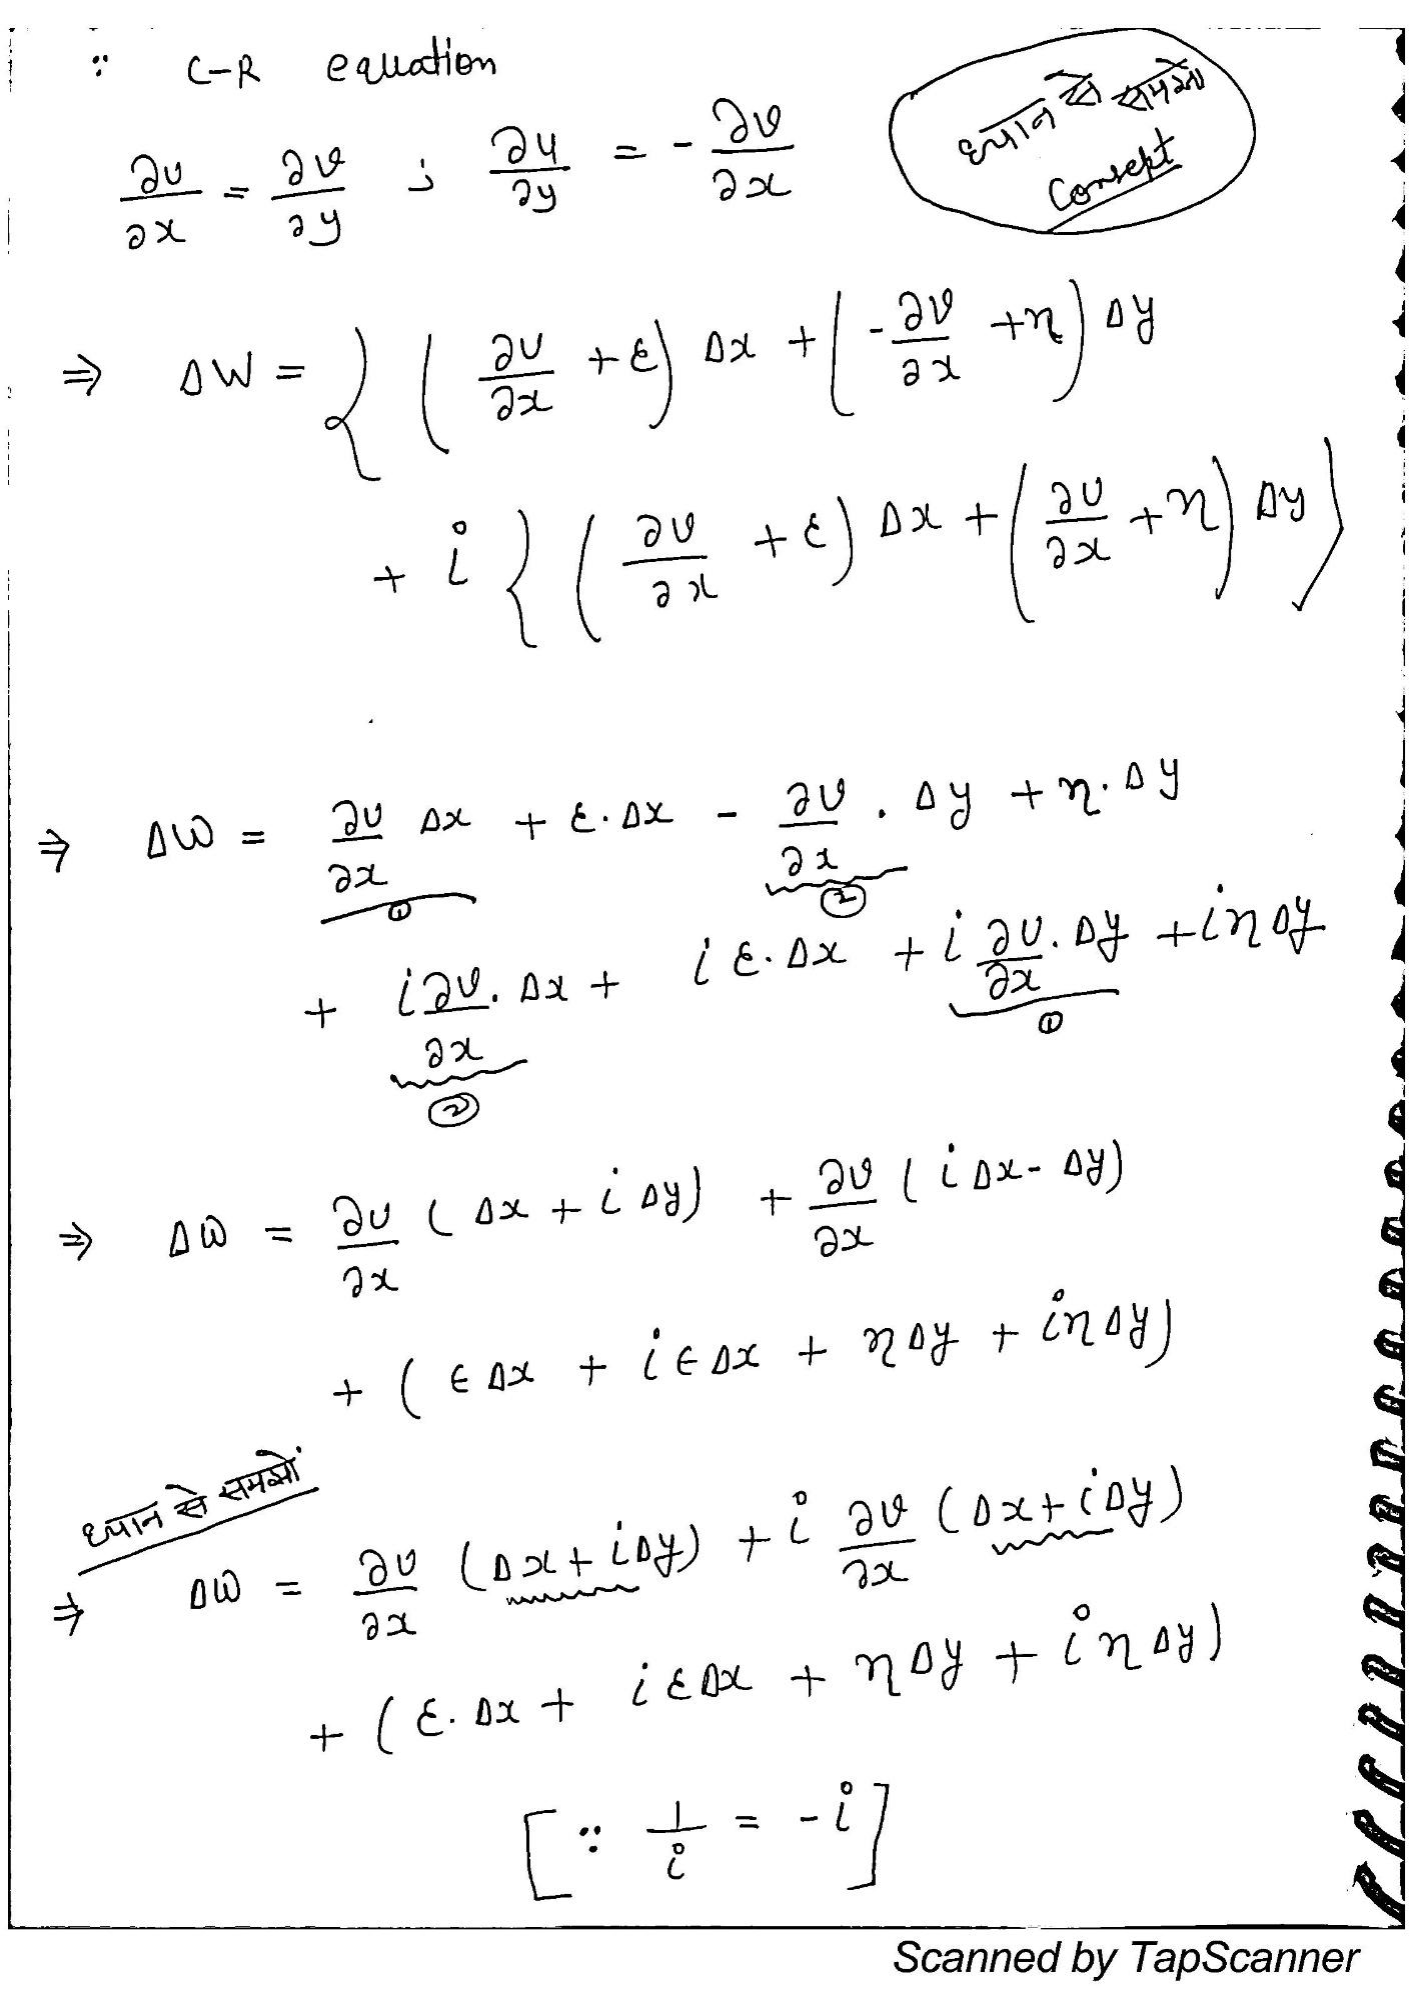 ∵ C-R equation
ध्यान से समझो
Consept
∂u/∂x = ∂v/∂y ; ∂u/∂y = - ∂v/∂x
⇒ ΔW = { ( ∂u/∂x + ε ) Δx + ( - ∂v/∂x + η ) Δy
+ i { ( ∂v/∂x + ε ) Δx + ( ∂u/∂x + η ) Δy }
⇒ ΔW = ∂u/∂x Δx + ε. Δx - ∂v/∂x . Δy + η. Δy
① ②
+ i ∂v/∂x . Δx + i ε. Δx + i ∂u/∂x . Δy + i η Δy
② ①
⇒ ΔW = ∂u/∂x ( Δx + i Δy ) + ∂v/∂x ( i Δx - Δy )
+ ( ∈ Δx + i ∈ Δx + η Δy + i η Δy )
ध्यान से समझों
⇒ ΔW = ∂u/∂x ( Δx + i Δy ) + i ∂v/∂x ( Δx + i Δy )
+ ( ε. Δx + i ε Δx + η Δy + i η Δy )
[ ∵ 1/i = - i ]
Scanned by TapScanner